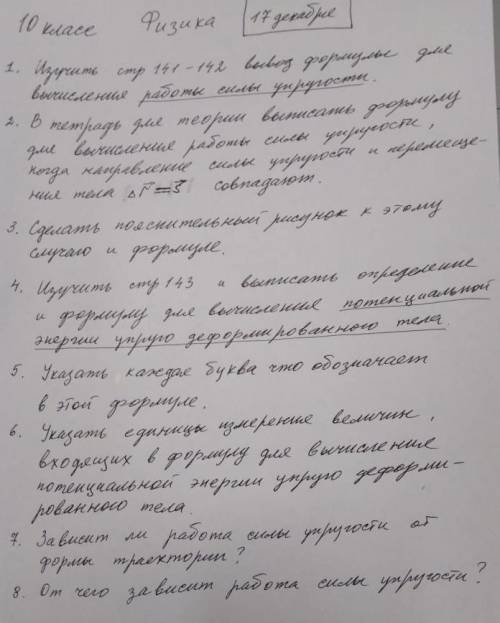 10 класс Физика 17 декабря
1. Изучить стр 141-142 вывод формулы для
вычисления работы силы упругости.
2. В тетрадь для теории выписать формулу
для вычисления работы силы упругости,
когда направление силы упругости и перемеще-
ния тела Δr⃗ = S⃗ совпадают.
3. Сделать пояснительный рисунок к этому
случаю и формуле.
4. Изучить стр 143 и выписать определение
и формулу для вычисления потенциальной
энергии упруго деформированного тела.
5. Указать каждая буква что обозначает
в этой формуле.
6. Указать единицы измерения величин,
входящих в формулу для вычисления
потенциальной энергии упруго деформи-
рованного тела.
7. Зависит ли работа силы упругости от
формы траектории?
8. От чего зависит работа силы упругости?